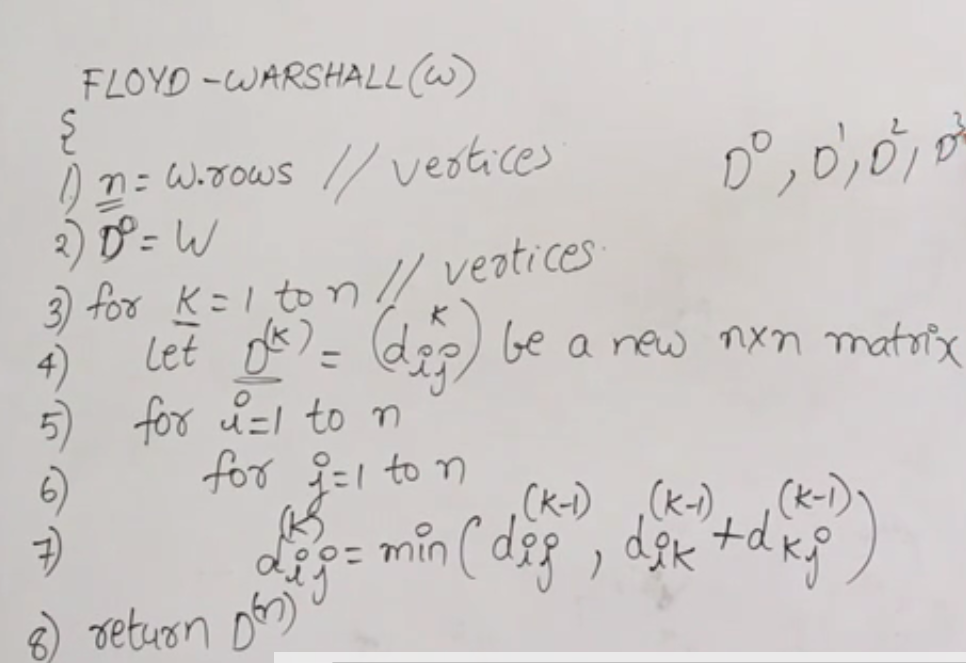 FLOYD-WARSHALL(W)
{
1) n = W.rows // vertices
D⁰, D¹, D², D³
2) D⁰ = W
3) for K = 1 to n // vertices
4) Let D^(K) = (d_ij^K) be a new nxn matrix
5) for i=1 to n
6) for j=1 to n
7) d_ij^(K) = min(d_ij^(K-1), d_iK^(K-1) + d_Kj^(K-1))
8) return D^(n)